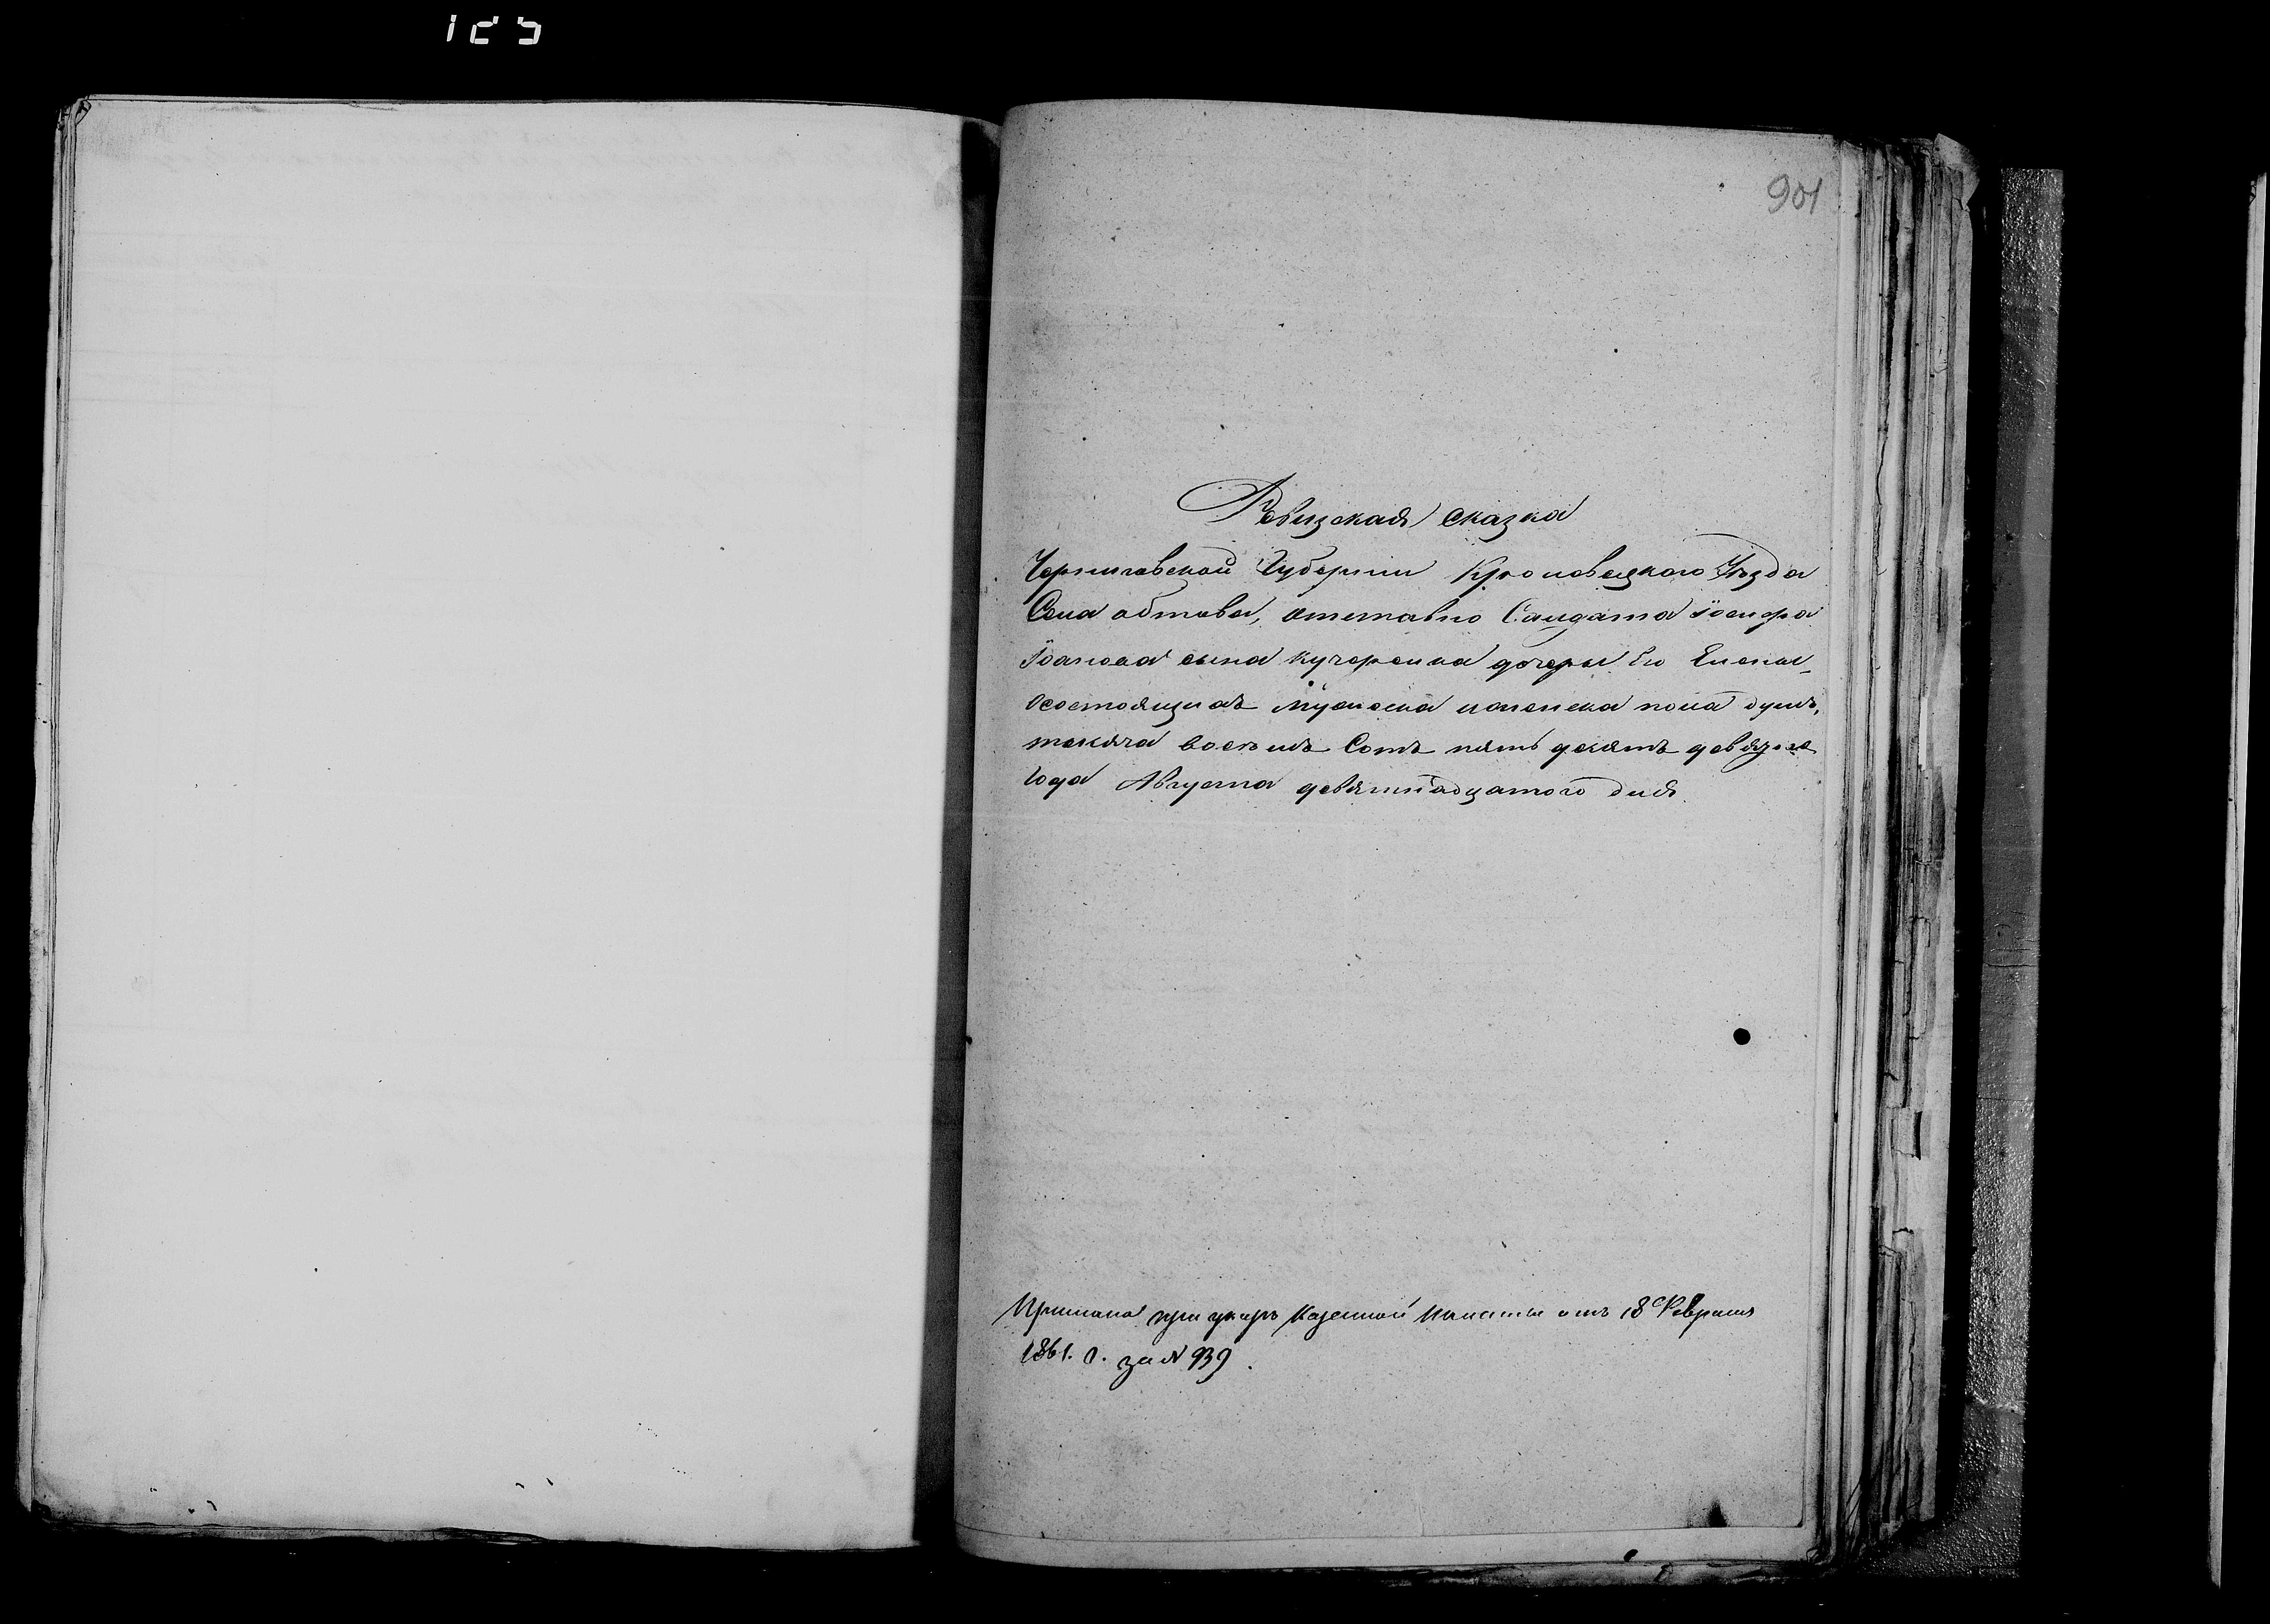 125
901
Ревизская сказка
Черниговской Губернии Кролевецкого Уѣзда
Села обтова, отставно Салдата Іосифа
Іоанова сына кучеренка дочеры Его Елены
осостоящихъ мужеска иженска пола душъ,
тисяча восемъ Сотъ пять десятъ девятого
года Августа девятнадцатого дня
Прислана при указѣ Казенной Палаты отъ 18 Февраля
1861. г. за № 939.